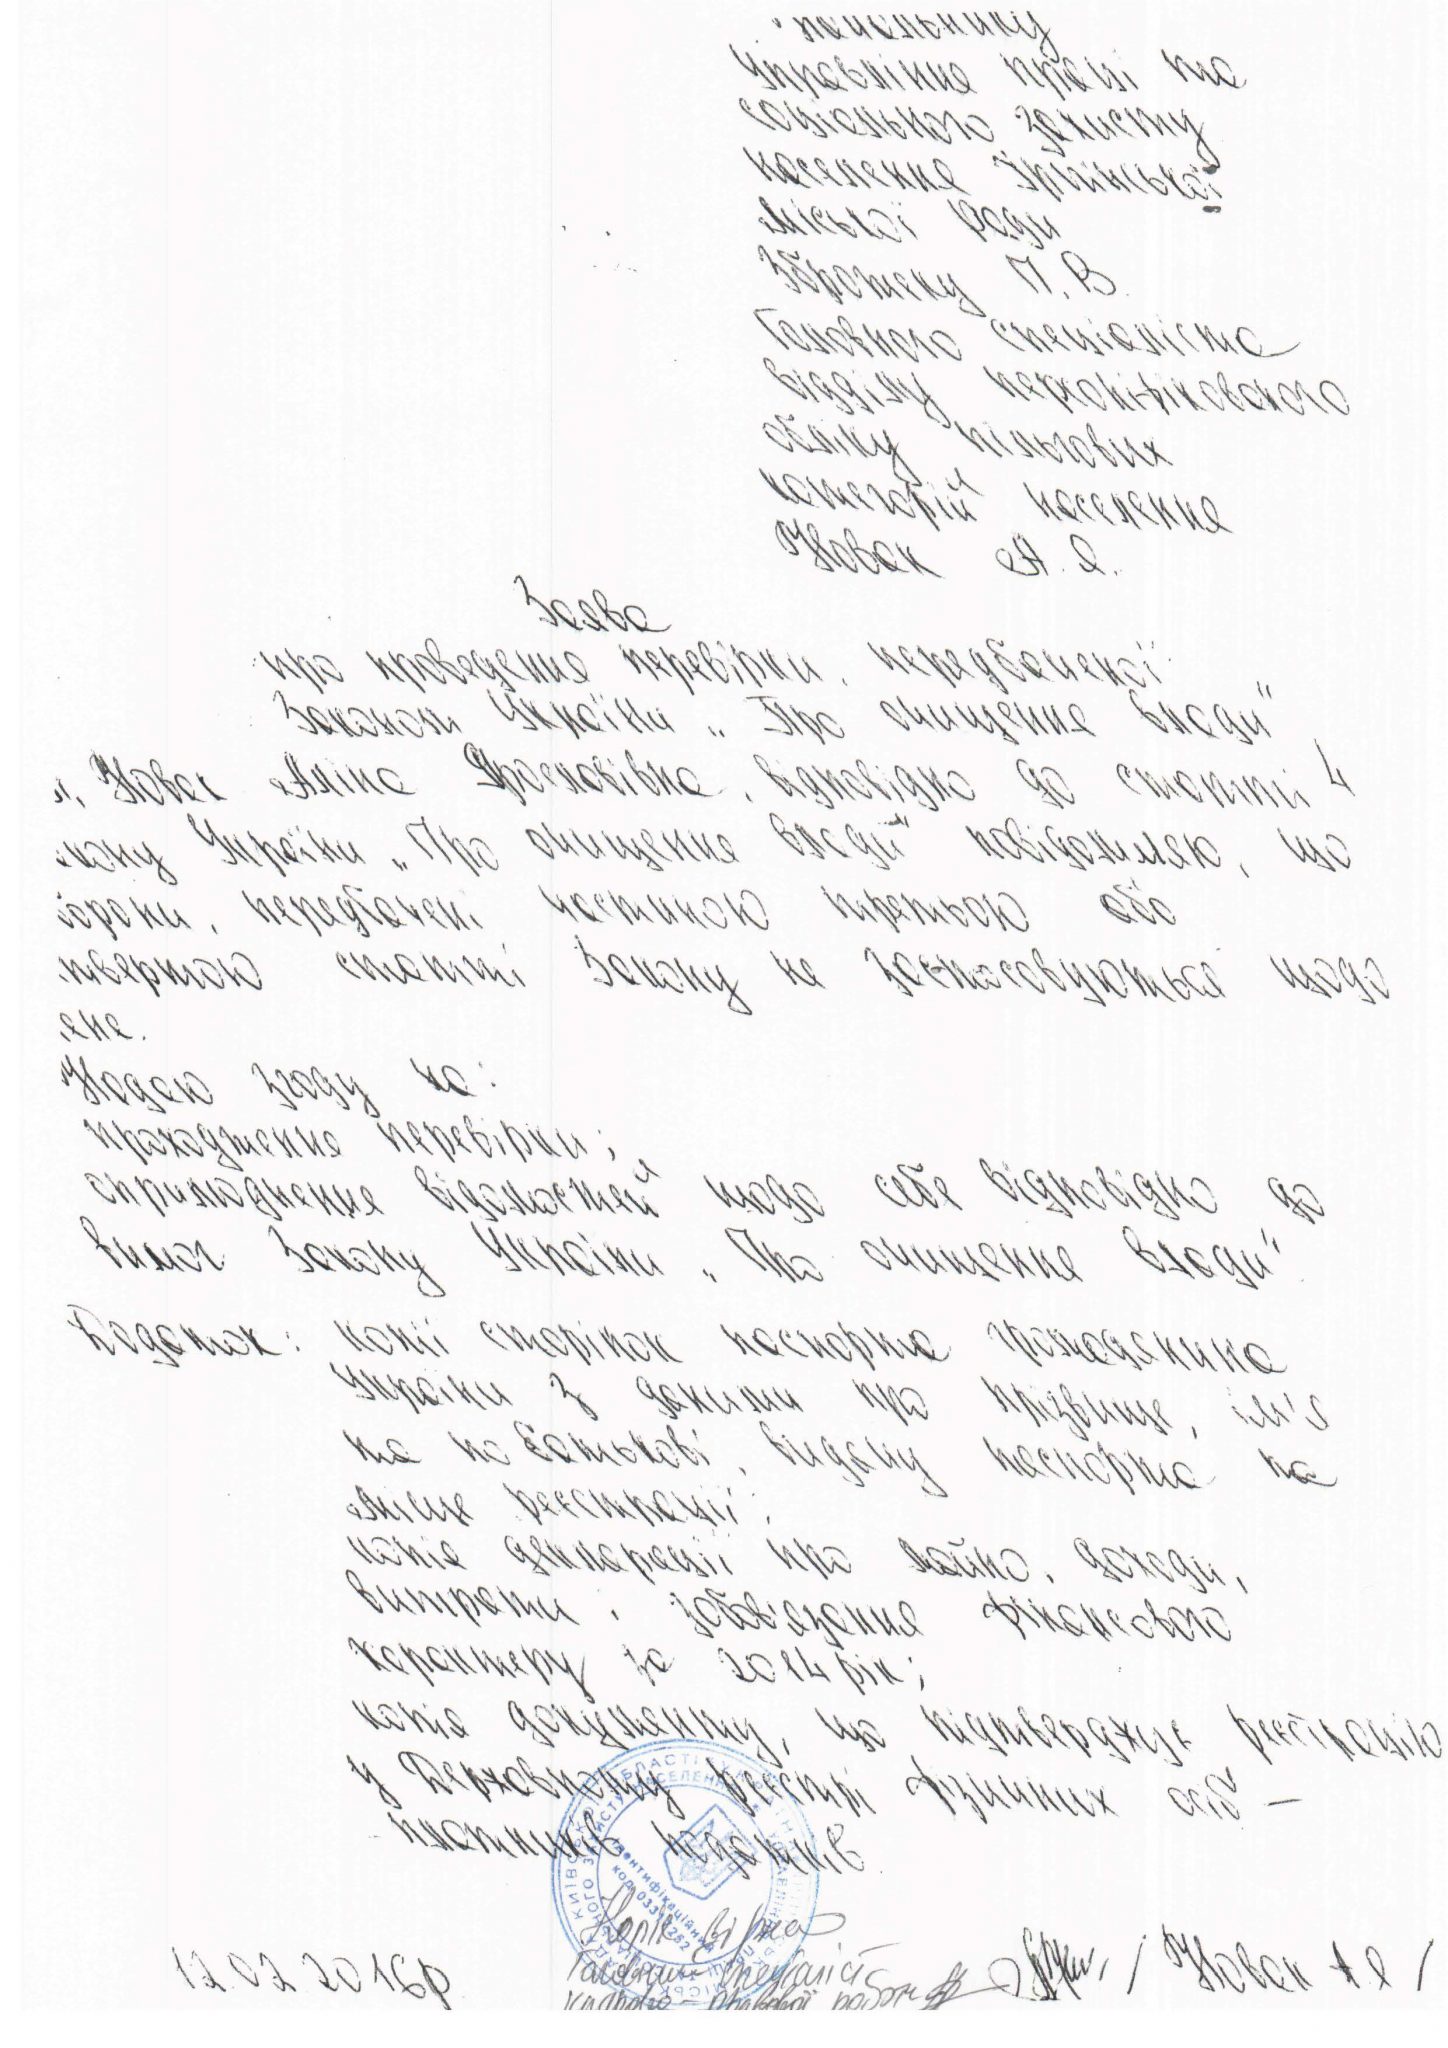 Начальнику
Управління праці та
соціального захисту
населення Ірпінської
міської ради
П. В.
Головного спеціаліста
відділу персоніфікованого
обліку пільгових
категорій населення
Новак А. Я.
Заява
про проведення перевірки, передбаченої
Законом України „Про очищення влади"
Я, Новак Аліна Ярославівна, відповідно до статті 4
акону України „Про очищення влади" повідомляю, що
борони, передбачені частиною третьою або
твертою статті Закону не застосовуються щодо
ене.
Надаю згоду на:
проходження перевірки;
оприлюднення відомостей щодо себе відповідно до
вимог Закону України „Про очищення влади".
Додаток: копії сторінок паспорта громадянина
України з даними про прізвище, ім'я
та по батькові, видачу паспорта та
місце реєстрації;
копія декларації про майно, доходи,
витрати і зобов'язання фінансового
характеру за 2014 рік;
копія документу, що підтверджує реєстрацію
у Державному реєстрі фізичних осіб —
платників податків.
Ідентифікаційний
код 03391262
Копія вірна
Головний спеціаліст
кадрово-правової роботи
12.02.2016р / Новак А Я /